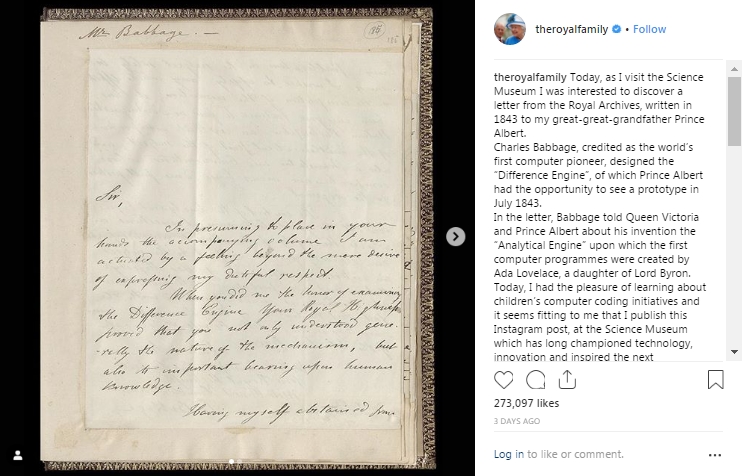 Mr Babbage. —
185
theroyalfamily • Follow
theroyalfamily Today, as I visit the Science
Museum I was interested to discover a
letter from the Royal Archives, written in
1843 to my great-great-grandfather Prince
Albert.
Charles Babbage, credited as the world's
first computer pioneer, designed the
"Difference Engine", of which Prince Albert
had the opportunity to see a prototype in
July 1843.
In the letter, Babbage told Queen Victoria
and Prince Albert about his invention the
"Analytical Engine" upon which the first
computer programmes were created by
Ada Lovelace, a daughter of Lord Byron.
Today, I had the pleasure of learning about
children's computer coding initiatives and
it seems fitting to me that I publish this
Instagram post, at the Science Museum
which has long championed technology,
innovation and inspired the next
Sir,
In presuming to place in your
hands the accompanying volume I am
actuated by a feeling beyond the mere desire
of expressing my dutiful respect.
When you did me the honor of examining
the Difference Engine Your Royal Highness
proved that you not only understood gene-
-rally the nature of the mechanism, but
also its important bearing upon human
knowledge.
Having myself obtained from
273,097 likes
3 DAYS AGO
Log in to like or comment.